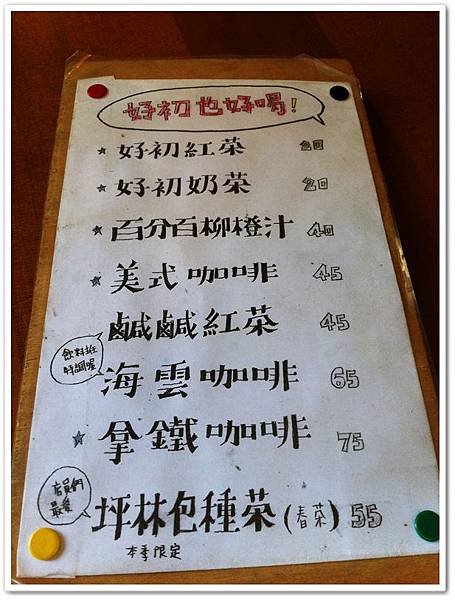 好初也好喝!
★ 好初紅茶 20
★ 好初奶茶 20
★ 百分百柳橙汁 40
★ 美式咖啡 45
鹹鹹紅茶 45
飲料班
特調喔
海雲咖啡 65
★ 拿鐵咖啡 75
店員們
最愛
坪林包種茶(春茶) 55
本季限定